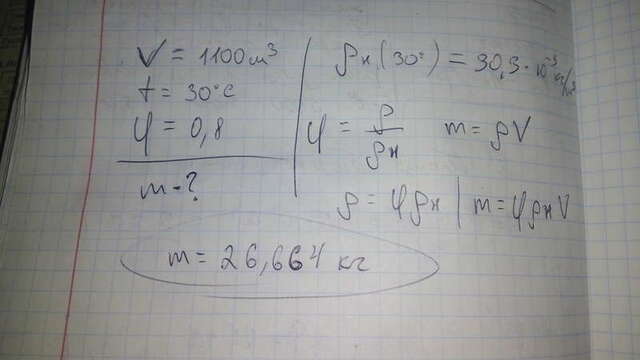 V = 1100 м³
t = 30°C
φ = 0,8
m - ?
ρн (30°) = 30,3 · 10⁻³ кг/м³
φ = ρ/ρн m = ρV
ρ = φρн | m = φρнV
m = 26,664 кг